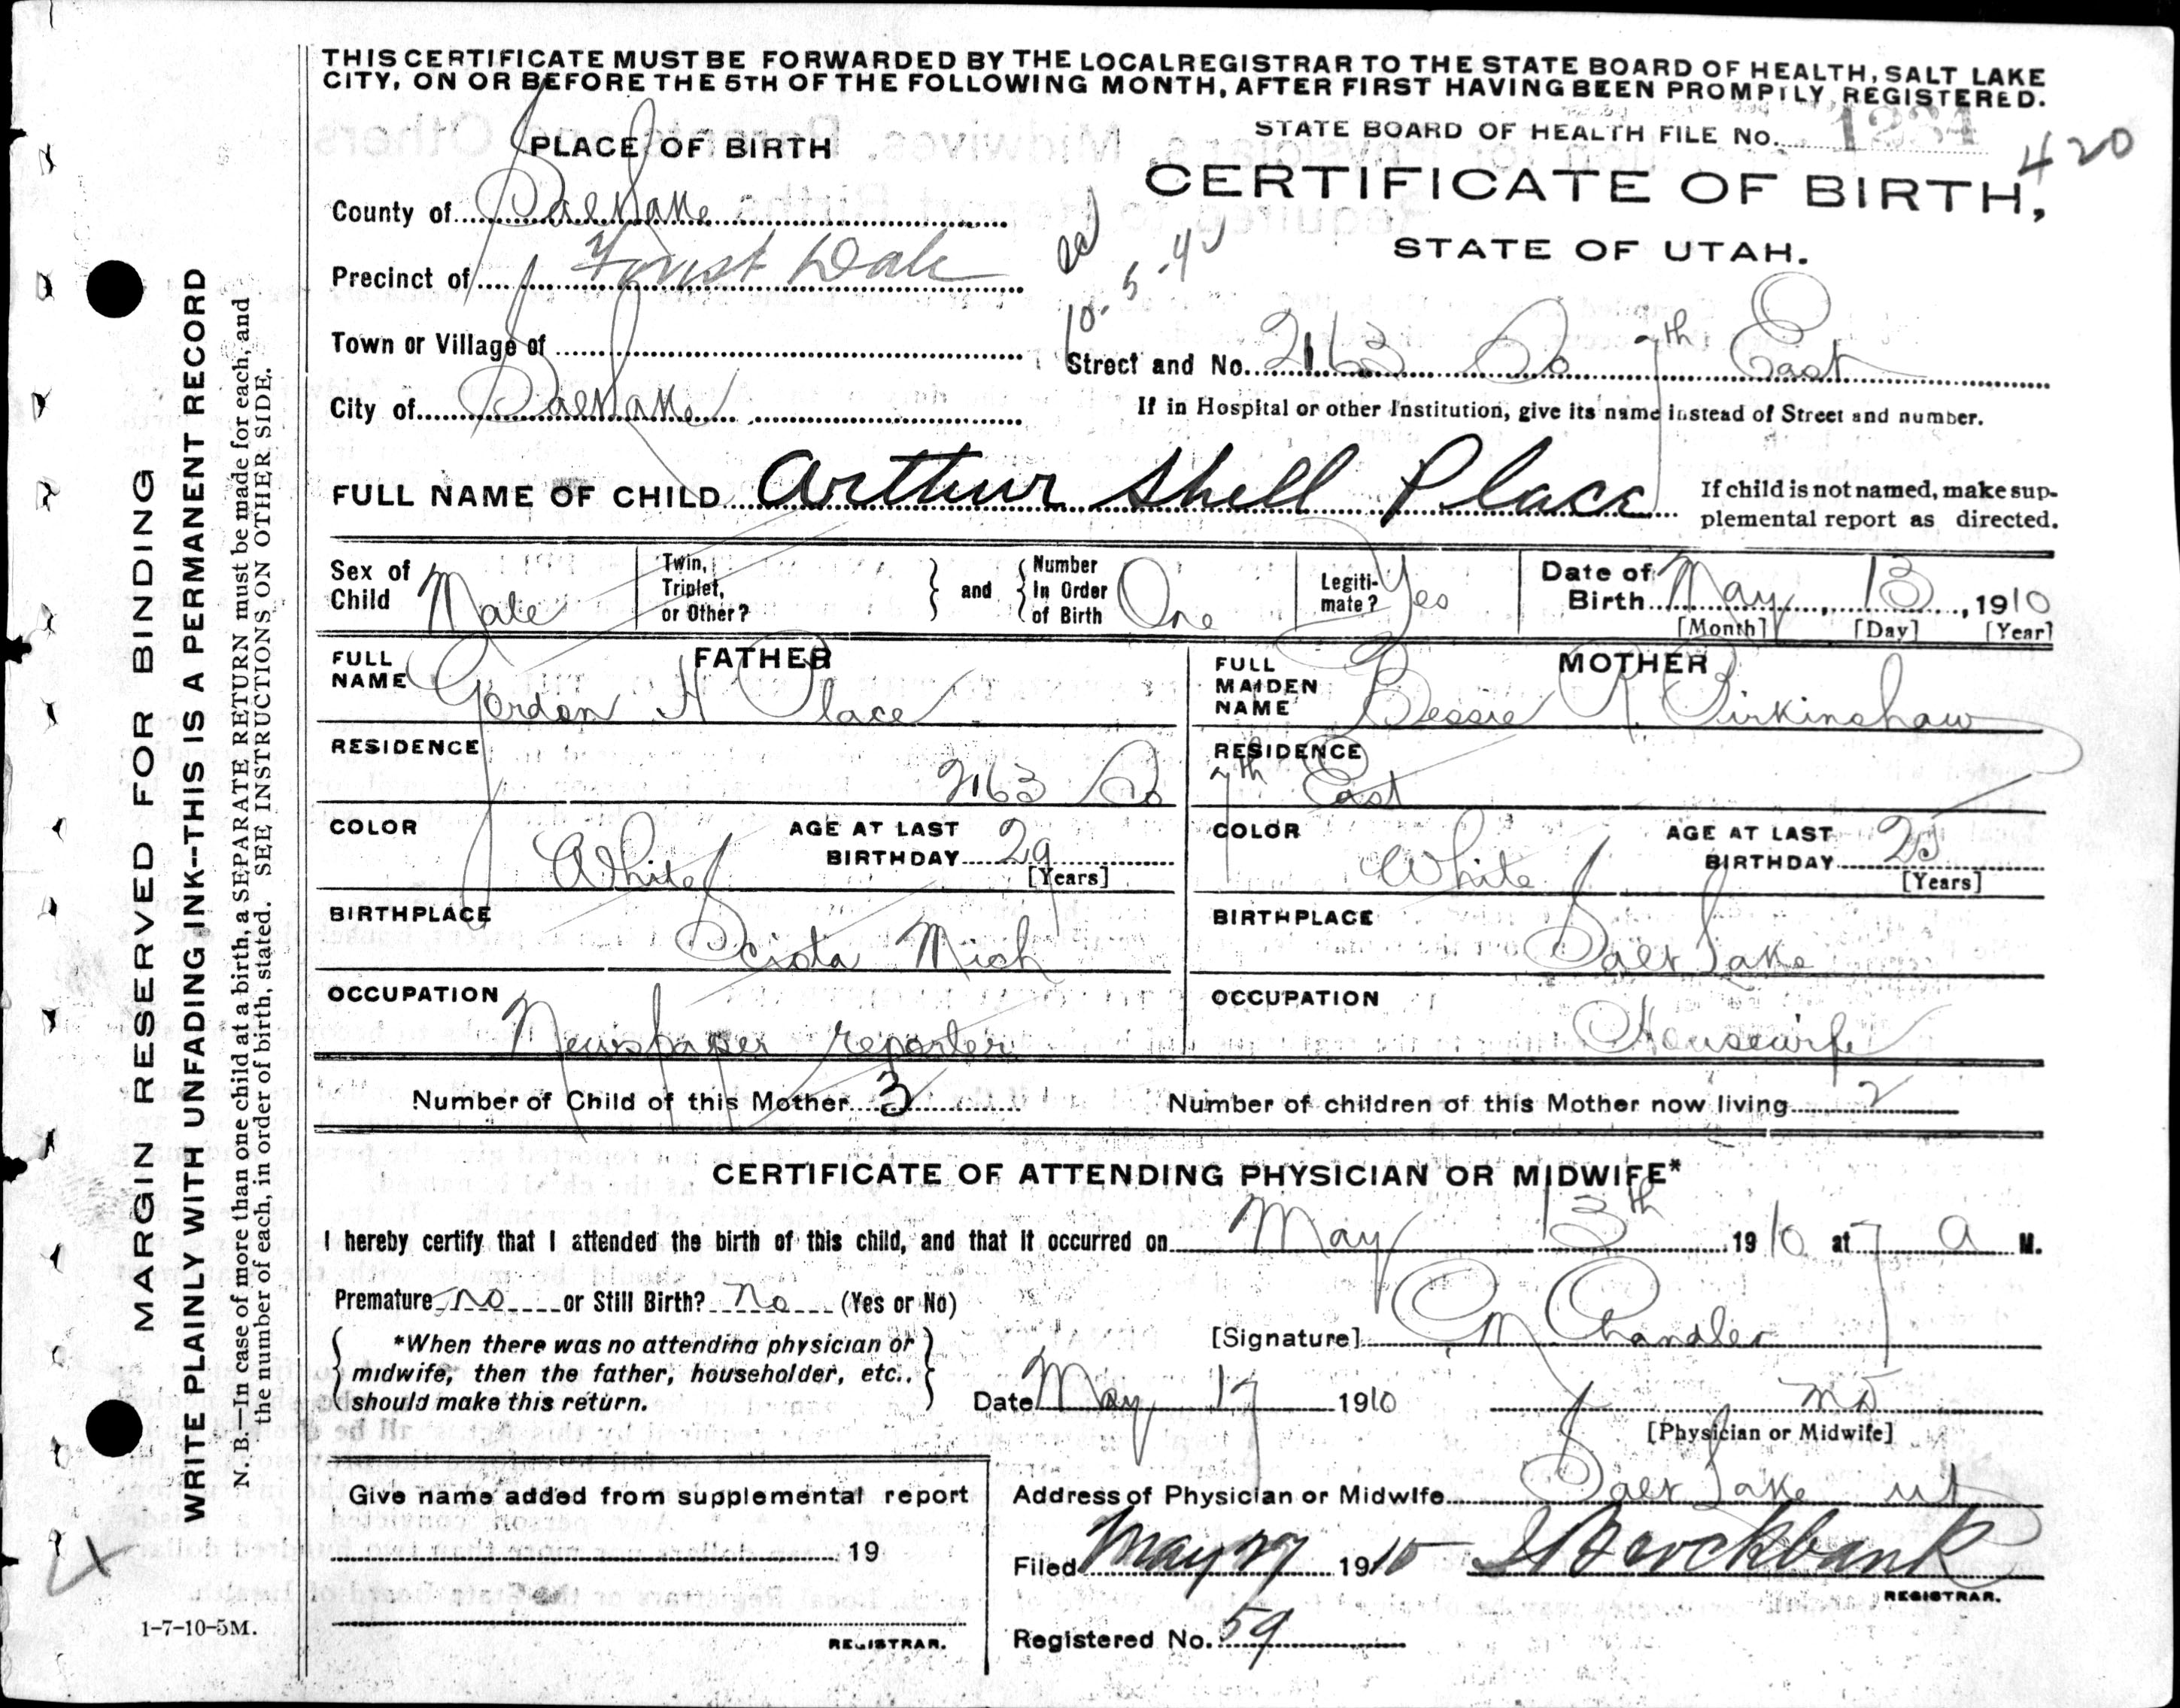 THIS CERTIFICATE MUST BE FORWARDED BY THE LOCAL REGISTRAR TO THE STATE BOARD OF HEALTH, SALT LAKE
CITY, ON OR BEFORE THE 5TH OF THE FOLLOWING MONTH, AFTER FIRST HAVING BEEN PROMPTLY REGISTERED.
STATE BOARD OF HEALTH FILE No.
420
PLACE OF BIRTH
CERTIFICATE OF BIRTH,
STATE OF UTAH.
County of Salt Lake
Precinct of Forest Dale
10-5-40
Town or Village of
Street and No. 2163 So 7th East
City of Salt Lake
If in Hospital or other Institution, give its name instead of Street and number.
FULL NAME OF CHILD Arthur Shell Place
If child is not named, make sup-
plemental report as directed.
Sex of Child Male
Twin, Triplet, or Other?
and
Number In Order of Birth One
Legiti-mate? Yes
Date of Birth May 13, 1910
[Month] [Day] [Year]
FATHER
FULL NAME Gordon H Place
MOTHER
FULL MAIDEN NAME Bessie R. Birkinshaw
RESIDENCE 2163 So
RESIDENCE 7th East
COLOR White
AGE AT LAST BIRTHDAY 29
[Years]
COLOR White
AGE AT LAST BIRTHDAY 25
[Years]
BIRTHPLACE Sciota Mich
BIRTHPLACE Salt Lake
OCCUPATION Newspaper reporter
OCCUPATION Housewife
Number of Child of this Mother 3
Number of children of this Mother now living 2
CERTIFICATE OF ATTENDING PHYSICIAN OR MIDWIFE*
I hereby certify that I attended the birth of this child, and that it occurred on May 13th 1910 at 7 a M.
Premature no or Still Birth? No (Yes or No)
*When there was no attending physician or
midwife, then the father, householder, etc.,
should make this return.
[Signature] CM Chandler
Date May 17 1910
MD
[Physician or Midwife]
Give name added from supplemental report
19
REGISTRAR.
Address of Physician or Midwife Salt Lake Ut
Filed May 27 1910 Brockbank
REGISTRAR.
Registered No. 59
1-7-10-5M.
MARGIN RESERVED FOR BINDING
WRITE PLAINLY WITH UNFADING INK--THIS IS A PERMANENT RECORD
N. B.—In case of more than one child at a birth, a SEPARATE RETURN must be made for each, and
the number of each, in order of birth, stated. SEE INSTRUCTIONS ON OTHER SIDE.